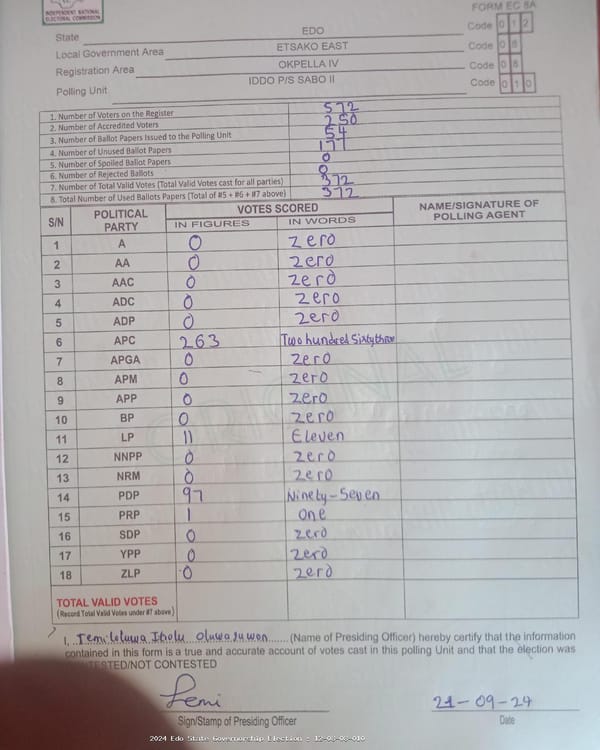 INDEPENDENT NATIONAL
ELECTORAL COMMISSION
FORM EC 8A
State EDO Code 0 1 2
Local Government Area ETSAKO EAST Code 0 8
Registration Area OKPELLA IV Code 0 8
Polling Unit IDDO P/S SABO II Code 0 1 0
1. Number of Voters on the Register 572
2. Number of Accredited Voters 250
3. Number of Ballot Papers Issued to the Polling Unit 54
4. Number of Unused Ballot Papers 177
5. Number of Spoiled Ballot Papers 0
6. Number of Rejected Ballots 0
7. Number of Total Valid Votes (Total Valid Votes cast for all parties) 372
8. Total Number of Used Ballots Papers (Total of #5 + #6 + #7 above) 372
S/N POLITICAL PARTY VOTES SCORED NAME/SIGNATURE OF POLLING AGENT
IN FIGURES IN WORDS
1 A 0 zero
2 AA 0 zero
3 AAC 0 zero
4 ADC 0 zero
5 ADP 0 zero
6 APC 263 Two hundred Sixty three
7 APGA 0 zero
8 APM 0 zero
9 APP 0 zero
10 BP 0 zero
11 LP 11 Eleven
12 NNPP 0 zero
13 NRM 0 zero
14 PDP 97 Ninety-Seven
15 PRP 1 one
16 SDP 0 zero
17 YPP 0 zero
18 ZLP 0 zero
TOTAL VALID VOTES
(Record Total Valid Votes under #7 above)
I, ...... (Name of Presiding Officer) hereby certify that the information
contained in this form is a true and accurate account of votes cast in this polling Unit and that the election was
TESTED/NOT CONTESTED
Temi 21-09-24
Sign/Stamp of Presiding Officer Date
2024 Edo State Governorship Election : 12-08-08-010